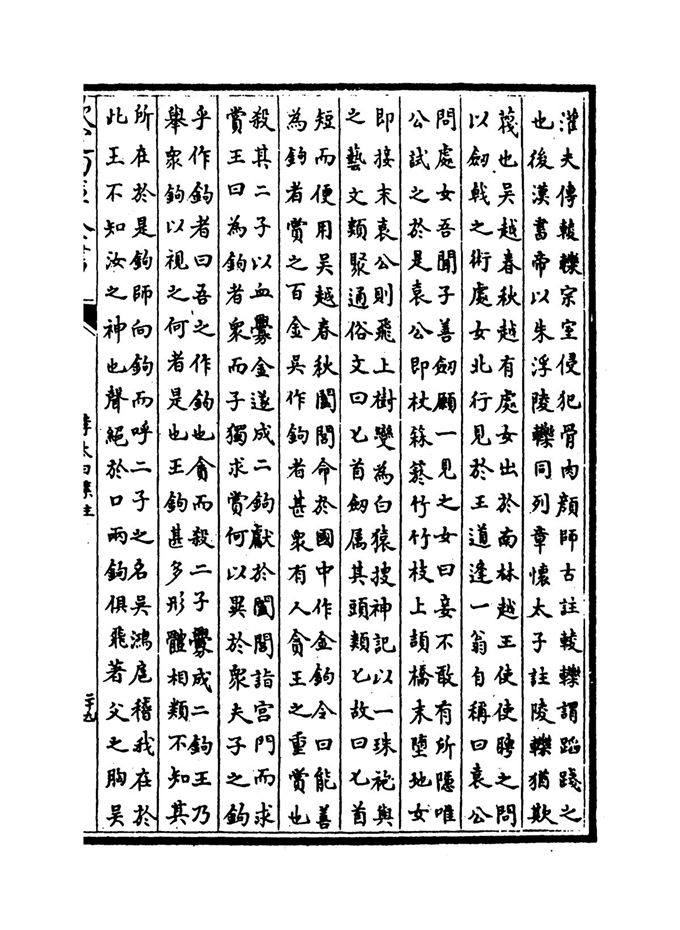 灌夫傳輘轢宗室侵犯骨肉顔師古註輘轢謂蹈踐之
也後漢書帝以朱浮陵轢同列章懷太子註陵轢猶欺
蔑也吳越春秋越有處女出於南林越王使使聘之問
以劒戟之術處女北行見於王道逢一翁自稱曰袁公
問處女吾聞子善劒願一見之女曰妾不敢有所隱唯
公試之於是袁公即杖箖箊竹竹枝上頡橋末墮地女
即接末袁公則飛上樹變為白猿搜神記以一珠袍與
之藝文類聚通俗文曰匕首劒属其頭類匕故曰匕首
短而便用吳越春秋闔閭命於國中作金鉤令曰能善
為鉤者賞之百金吳作鉤者甚衆有人貪王之重賞也
殺其二子以血釁金遂成二鉤獻於闔閭詣宫門而求
賞王曰為鉤者衆而子獨求賞何以異於衆夫子之鉤
乎作鉤者曰吾之作鉤也貪而殺二子釁成二鉤王乃
舉衆鉤以視之何者是也王鉤甚多形體相類不知其
所在於是鉤師向鉤而呼二子之名吳鴻扈稽我在於
此王不知汝之神也聲絶於口兩鉤俱飛著父之胸吳
欽定四庫全書
李太白集注
二十九